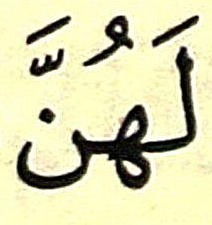 لَهُنَّ